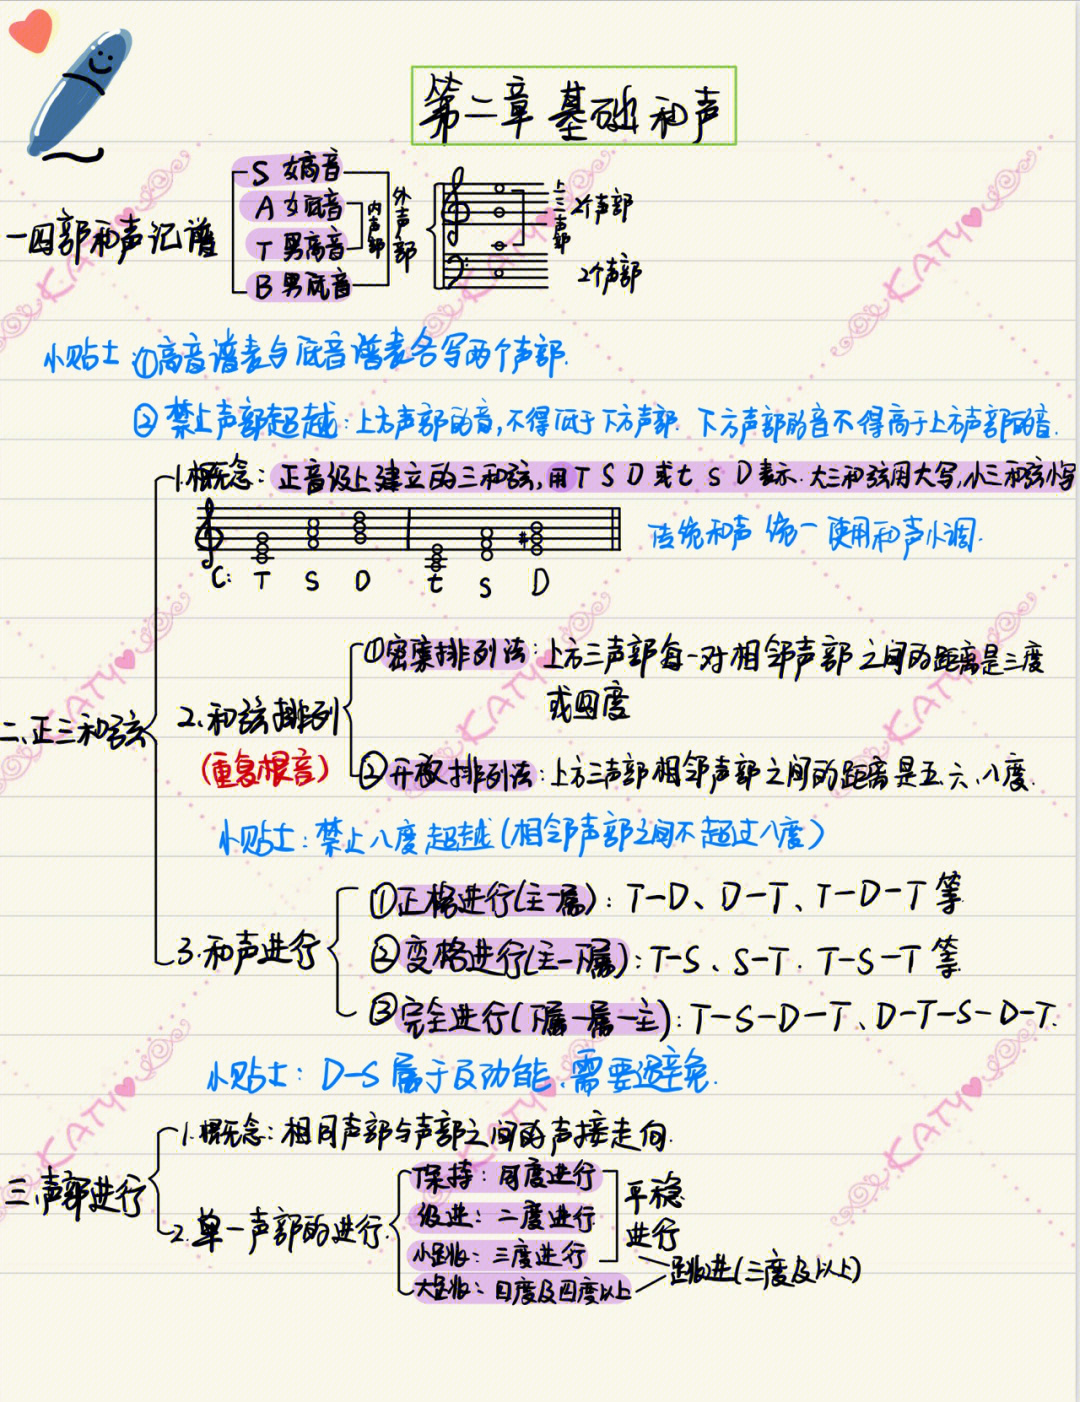 第二章 基础和声
一四部和声记谱
S 女高音
A 女低音
T 男高音
B 男低音
内声部
外声部
上三声部
2个声部
2个声部
小贴士 ①高音谱表与低音谱表各写两个声部.
② 禁止声部超越:上方声部的音,不得低于下方声部. 下方声部的音不得高于上方声部的音.
二、正三和弦
1.概念:正音级上建立的三和弦,用T S D 或 t s D 表示.大三和弦用大写,小三和弦小写
传统和声 统一使用和声小调.
C: T S D t s D
2.和弦排列
(重复根音)
①密集排列法:上方三声部每一对相邻声部之间的距离是三度
或四度
②开放排列法:上方三声部相邻声部之间的距离是五、六、八度.
小贴士:禁止八度超越(相邻声部之间不超过八度)
3.和声进行
①正格进行(主-属):T-D、D-T、T-D-T等
②变格进行(主-下属):T-S、S-T.T-S-T等
③完全进行(下属-属-主):T-S-D-T、D-T-S-D-T.
小贴士:D-S属于反功能、需要避免.
三.声部进行
1.概念:相同声部与声部之间的声接走向.
2.单一声部的进行
保持:同度进行
级进:二度进行
小跳:三度进行
大跳:四度及四度以上
平稳
进行
跳进(三度及以上)
KATY
KATY
KATY
KATY
KATY
KATY